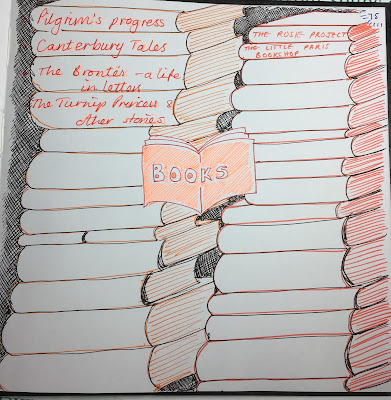 Pilgrim's progress
Canterbury Tales
The Brontës - a life
in letters
The Turnip Princess &
other stories
THE ROSIE PROJECT
THE LITTLE PARIS
BOOKSHOP
BOOKS